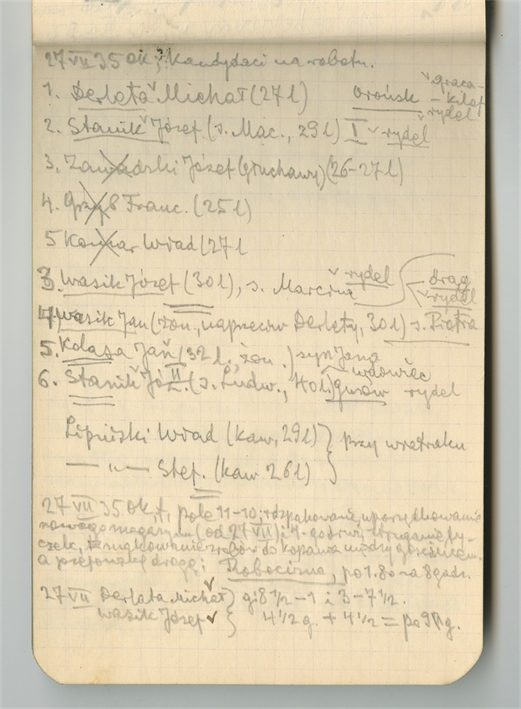 27 VII 35 ok, Kandydaci na robotn.
1. Derlata Michał (27 l) Orońsk graca-
- kilof
rydel
2. Stanik Józef (s. Mac., 29 l) I rydel
3. Zawadzki Józef (głuchawy) (26-27 l)
4. Grzyb Franc. (25 l)
5 Komar Wład (27 l
3. Wasik Józef (30 l), s. Marcina rydel drąg
rydel
4. Wasik Jan (żon., naprzeciw Derlaty, 30 l) s. Piotra
5. Kolasa Jan (32 l., żon.) syn Jana
6. Stanik Józ. II (s. Ludw., 40 l. wdowiec
Guzów rydel
Lipiński Wład (kaw, 29 l) } przy wiatraku
— „ — Stef. (kaw 26 l)
27 VII 35 ok, pole 11-10; rozpakowanie, uporządkowanie
nowego (od 27 VII) i
do kopania między
a drogę; Robocizna, po 1.80 za 8 godz.
27 VII Derlata Michał } g. 8 1/2 - 1 i 3 - 7 1/2.
Wasik Józef 4 1/2 g. + 4 1/2 = po 9 g.